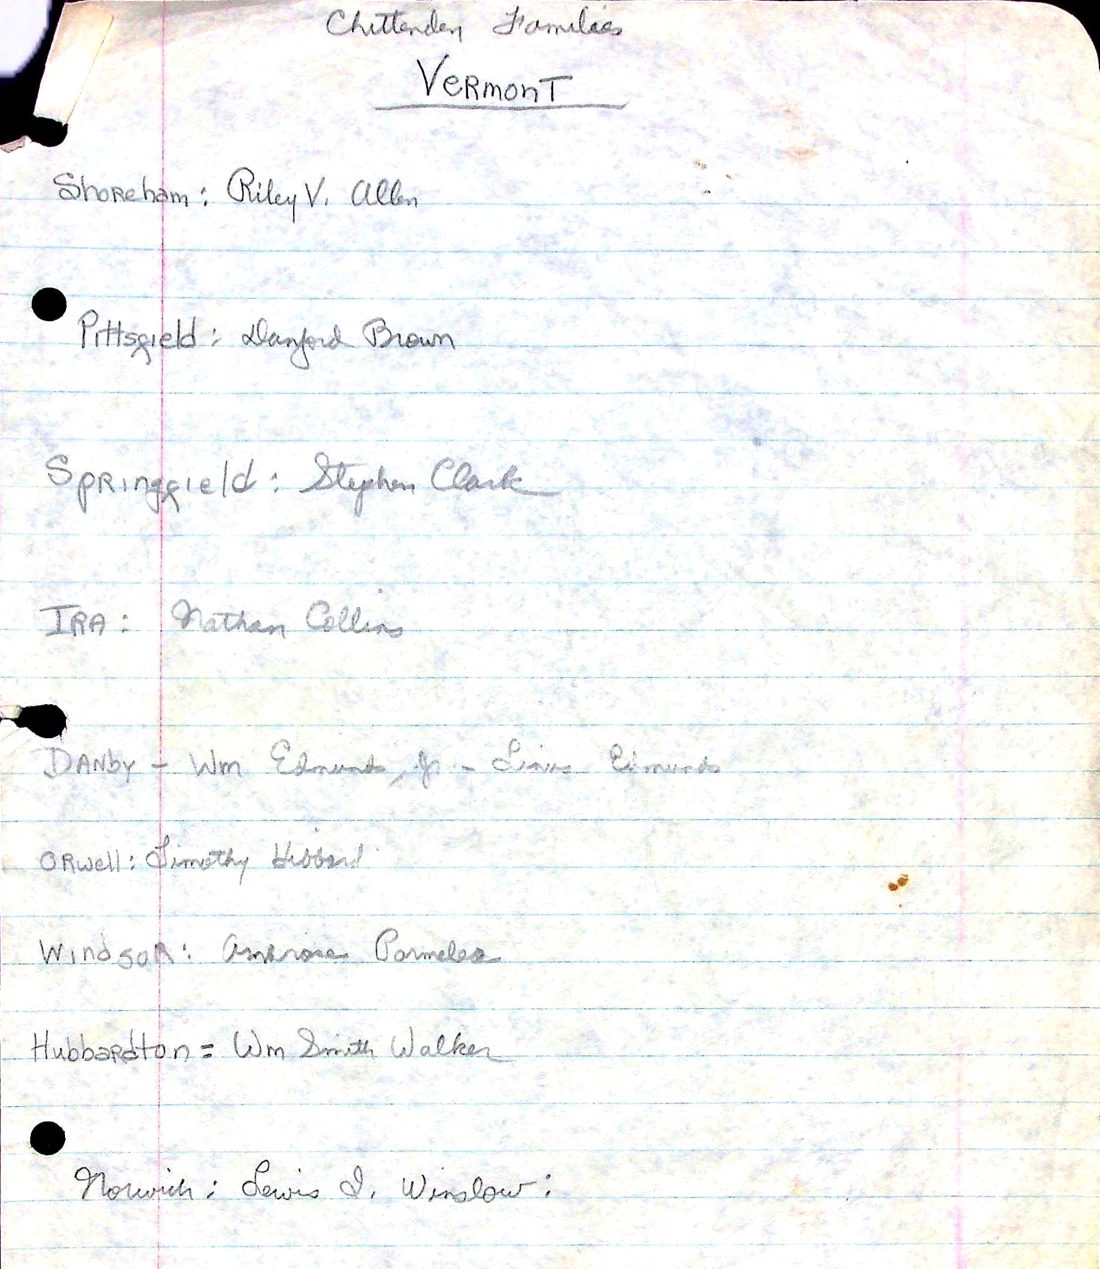 Chittenden Families
Vermont
Shoreham: Riley V. Allen
Pittsfield: Danford Brown
Springfield: Stephen Clark
IRA: Nathan Collins
Danby - Wm Edmunds, Jr - Linus Edmunds
Orwell: Timothy Hibbard
Windsor: Ambrose Parmelee
Hubbardton = Wm Smith Walker
Norwich: Lewis I. Winslow: